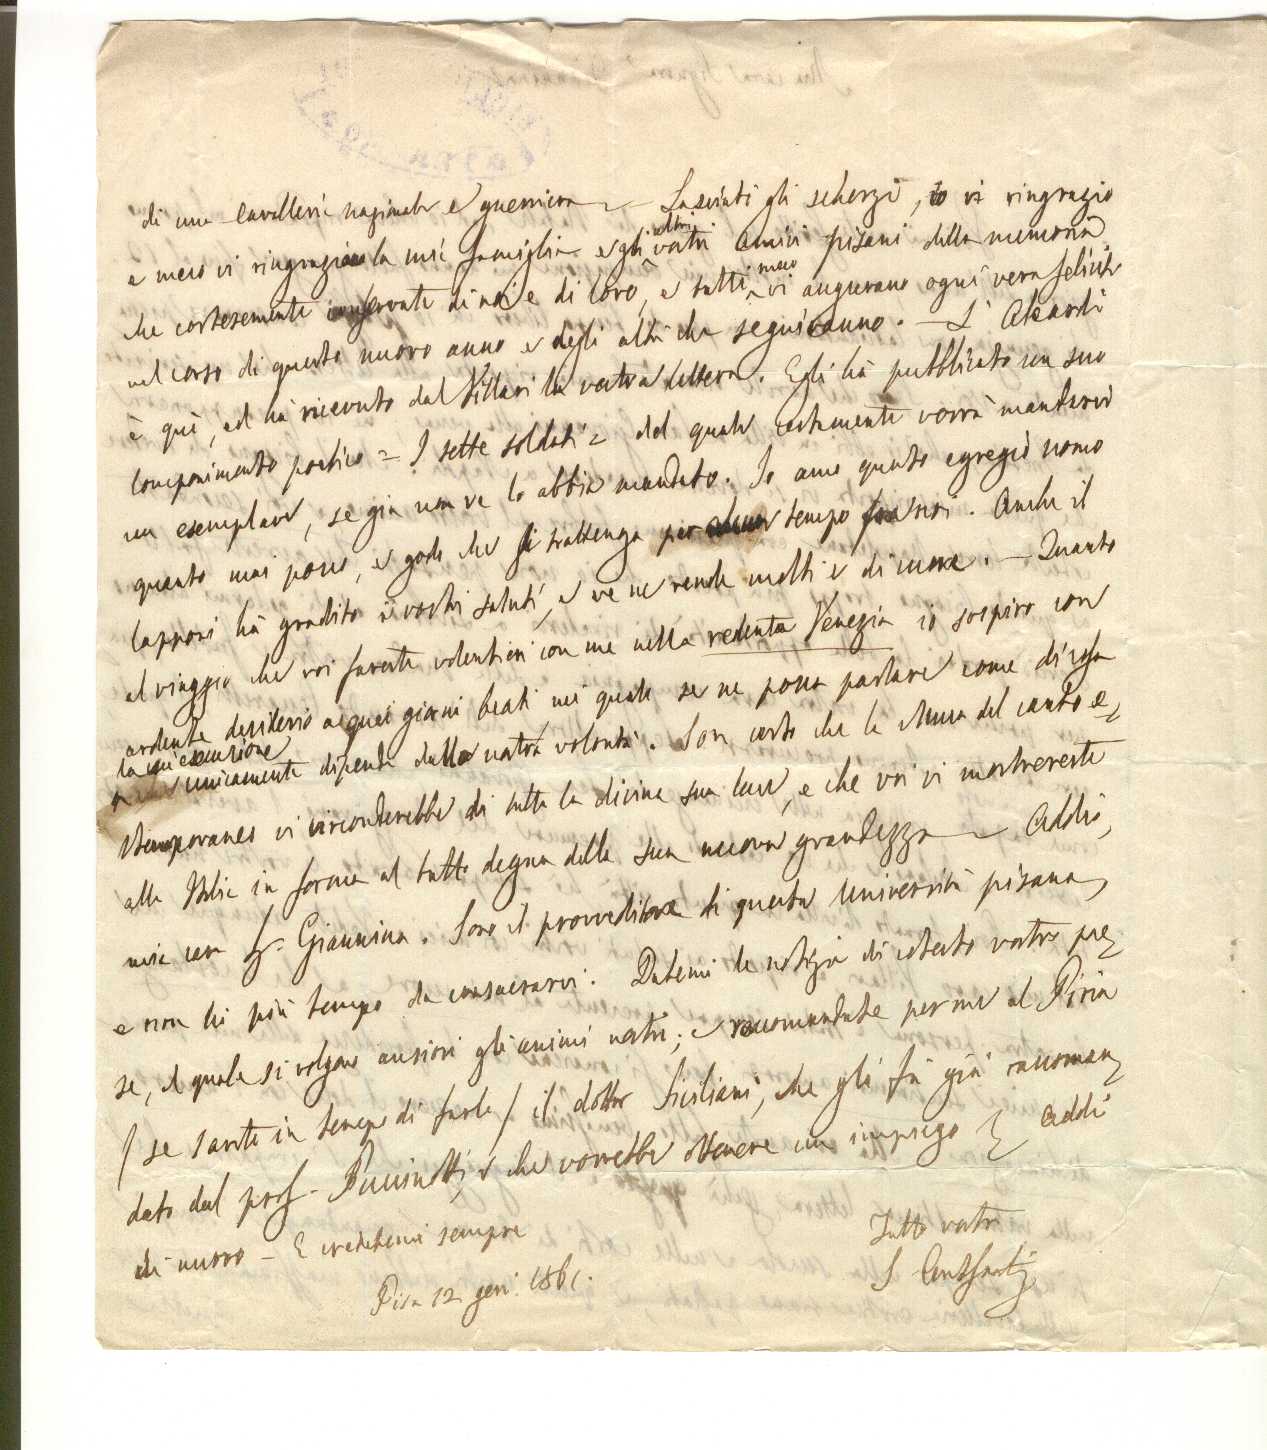 di una cavalleria nazionale e guerriera — Lasciati gli scherzi, io vi ringrazio
e meco vi ringraziano la mia famiglia e gli altri vostri amici pisani della memoria
che cortesemente conservate di me e di loro, e tutti meco vi augurano ogni vera felicità
nel corso di questo nuovo anno e degli altri che seguiranno. — L'Aleardi
è quì, ed ha ricevuto dal Villari la vostra lettera. Egli ha pubblicato un suo
componimento poetico = I sette soldati = del quale certamente vorrà mandarvi
un esemplare, se già non ve lo abbia mandato. Io amo questo egregio uomo
quanto mai posso, e godo che si trattenga per alcun tempo fra noi. Anche il
Capponi ha gradito i vostri saluti, e ve ne rende molti e di cuore. — Quanto
al viaggio che voi fareste volentieri con me nella redenta Venezia io sospiro con
ardente desiderio a quei giorni beati nei quali se ne possa parlare come di cosa
la cui esecuzione
unicamente dipenda dalla vostra volontà. Son certo che la Musa del canto e=
stemporaneo vi circonderebbe di tutta la divina sua luce, e che voi vi mostrereste
alla Italia in forma al tutto degna della sua nuova grandezza — Addio,
mia cara Sig.ra Giannina. Sono il provveditore di questa Università pisana,
e non ho più tempo da consacrarvi. Datemi le notizie di cotesto vostro pae=
se, al quale si volgono ansiosi gli animi nostri; e raccomandate per me al Piria
/ se sarete in tempo di farlo / il dottor Siciliani, che gli fu già raccoman=
dato dal prof. Puccinotti, e che vorrebbe ottenere un impiego. Addio
di nuovo — E credetemi sempre
Tutto vostro
S Centofanti
Pisa 12 gen. 1861.